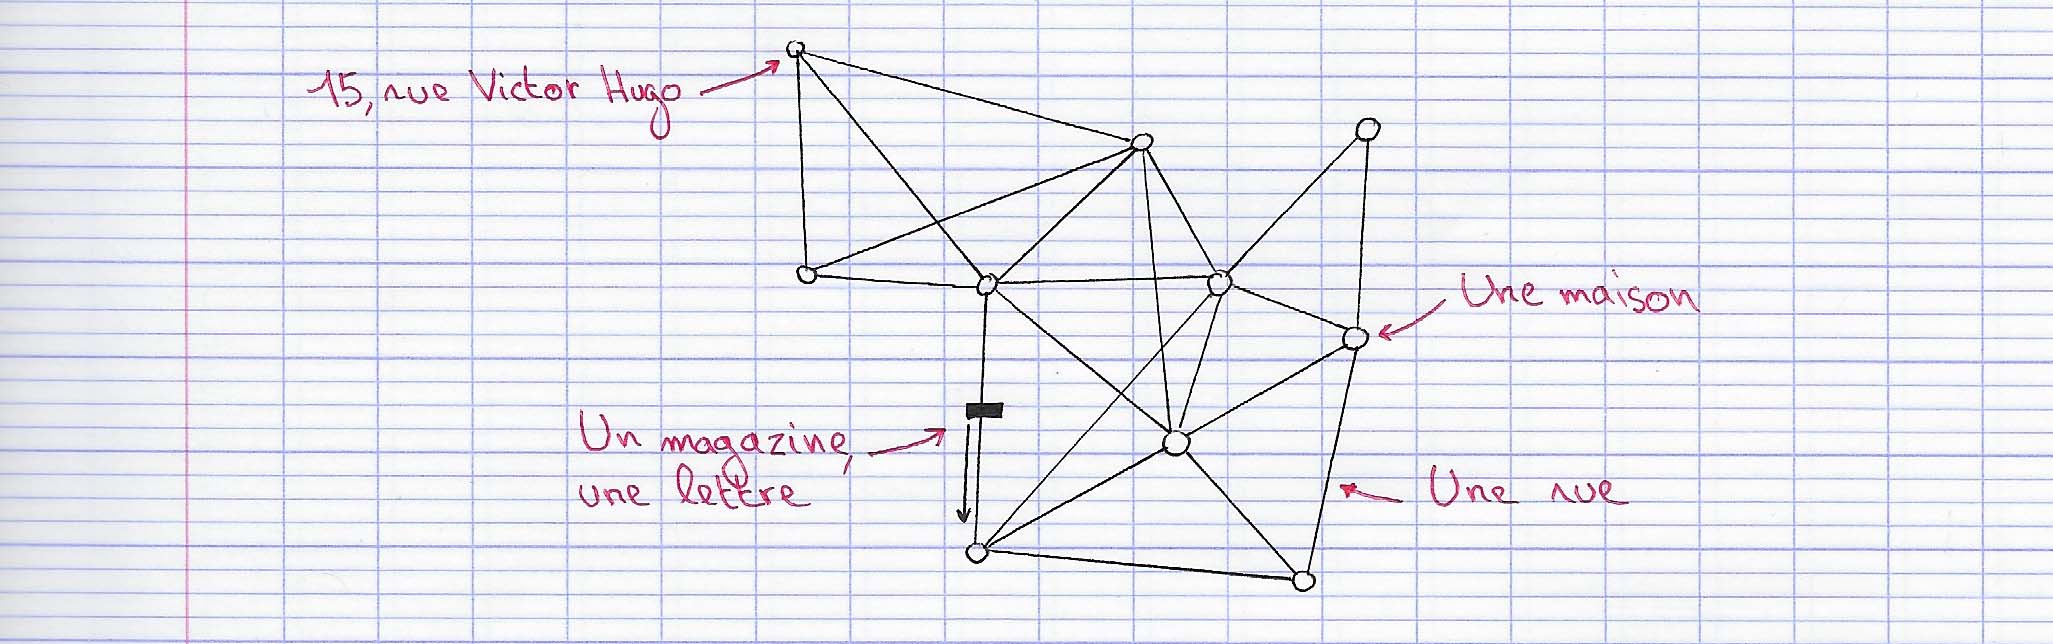 15, rue Victor Hugo
Une maison
Un magazine,
une lettre
Une rue